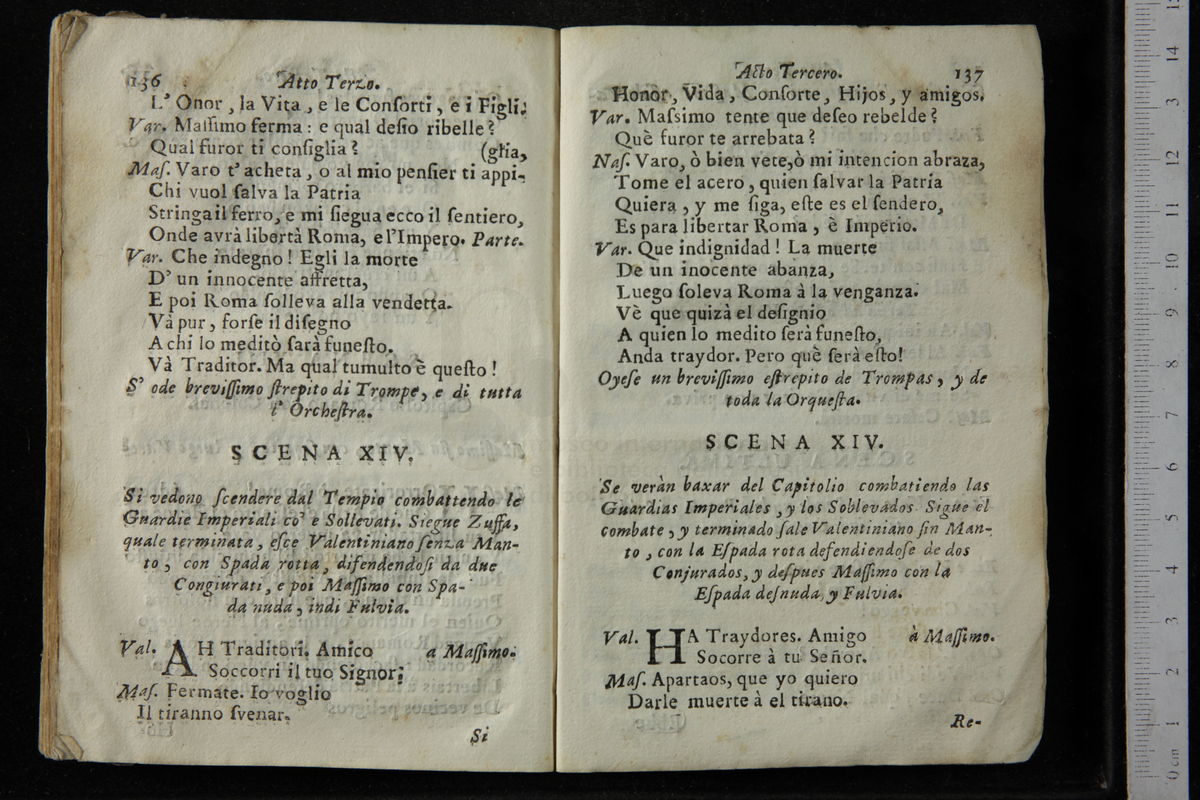 136 Atto Terzo.
L' Onor, la Vita, e le Conſorti, e i Figli.
Var. Maſſimo ferma: e qual deſio ribelle?
Qual furor ti conſiglia? (glia,
Maſ. Varo t' acheta, o al mio penſier ti appi-
Chi vuol ſalva la Patria
Stringa il ferro, e mi ſiegua ecco il ſentiero,
Onde avrà libertà Roma, e l'Impero. Parte.
Var. Che indegno! Egli la morte
D' un innocente affretta,
E poi Roma ſolleva alla vendetta.
Và pur, forſe il diſegno
A chi lo meditò ſarà funeſto.
Và Traditor. Ma qual tumulto è queſto!
S' ode breviſſimo ſtrepito di Trompe, e di tutta
l' Orcheſtra.
SCENA XIV.
Si vedono ſcendere dal Tempio combattendo le
Guardie Imperiali co' e Sollevati. Siegue Zuffa,
quale terminata, eſce Valentiniano ſenza Man-
to, con Spada rotta, difendendoſi da due
Congiurati, e poi Maſſimo con Spa-
da nuda, indi Fulvia.
Val. AH Traditori. Amico a Maſſimo.
Soccorri il tuo Signor;
Maſ. Fermate. Io voglio
Il tiranno ſvenar.
Si
Acto Tercero. 137
Honor, Vida, Conſorte, Hijos, y amigos.
Var. Maſsimo tente que deſeo rebelde?
Què furor te arrebata?
Naſ. Varo, ò bien vete, ò mi intencion abraza,
Tome el acero, quien ſalvar la Patria
Quiera, y me ſiga, eſte es el ſendero,
Es para libertar Roma, è Imperio.
Var. Que indignidad! La muerte
De un inocente abanza,
Luego ſoleva Roma à la venganza.
Vè que quizà el deſignio
A quien lo medito ſerà funeſto,
Anda traydor. Pero què ſerà eſto!
Oyeſe un breviſſimo eſtrepito de Trompas, y de
toda la Orqueſta.
SCENA XIV.
Se veràn baxar del Capitolio combatiendo las
Guardias Imperiales, y los Soblevados Sigue el
combate, y terminado ſale Valentiniano ſin Man-
to, con la Eſpada rota defendiendoſe de dos
Conjurados, y deſpues Maſſimo con la
Eſpada deſnuda, y Fulvia.
Val. HA Traydores. Amigo à Maſſimo.
Socorre à tu Señor.
Maſ. Apartaos, que yo quiero
Darle muerte à el tirano.
Re-
0 cm 1 2 3 4 5 6 7 8 9 10 11 12 3 14